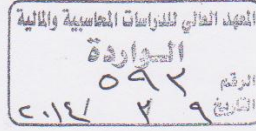 المعهد العالي للدراسات المحاسبية والمالية
الـواردة
الرقم ٥٩٣
التاريخ ٩ ٣ ٢٠١٤/